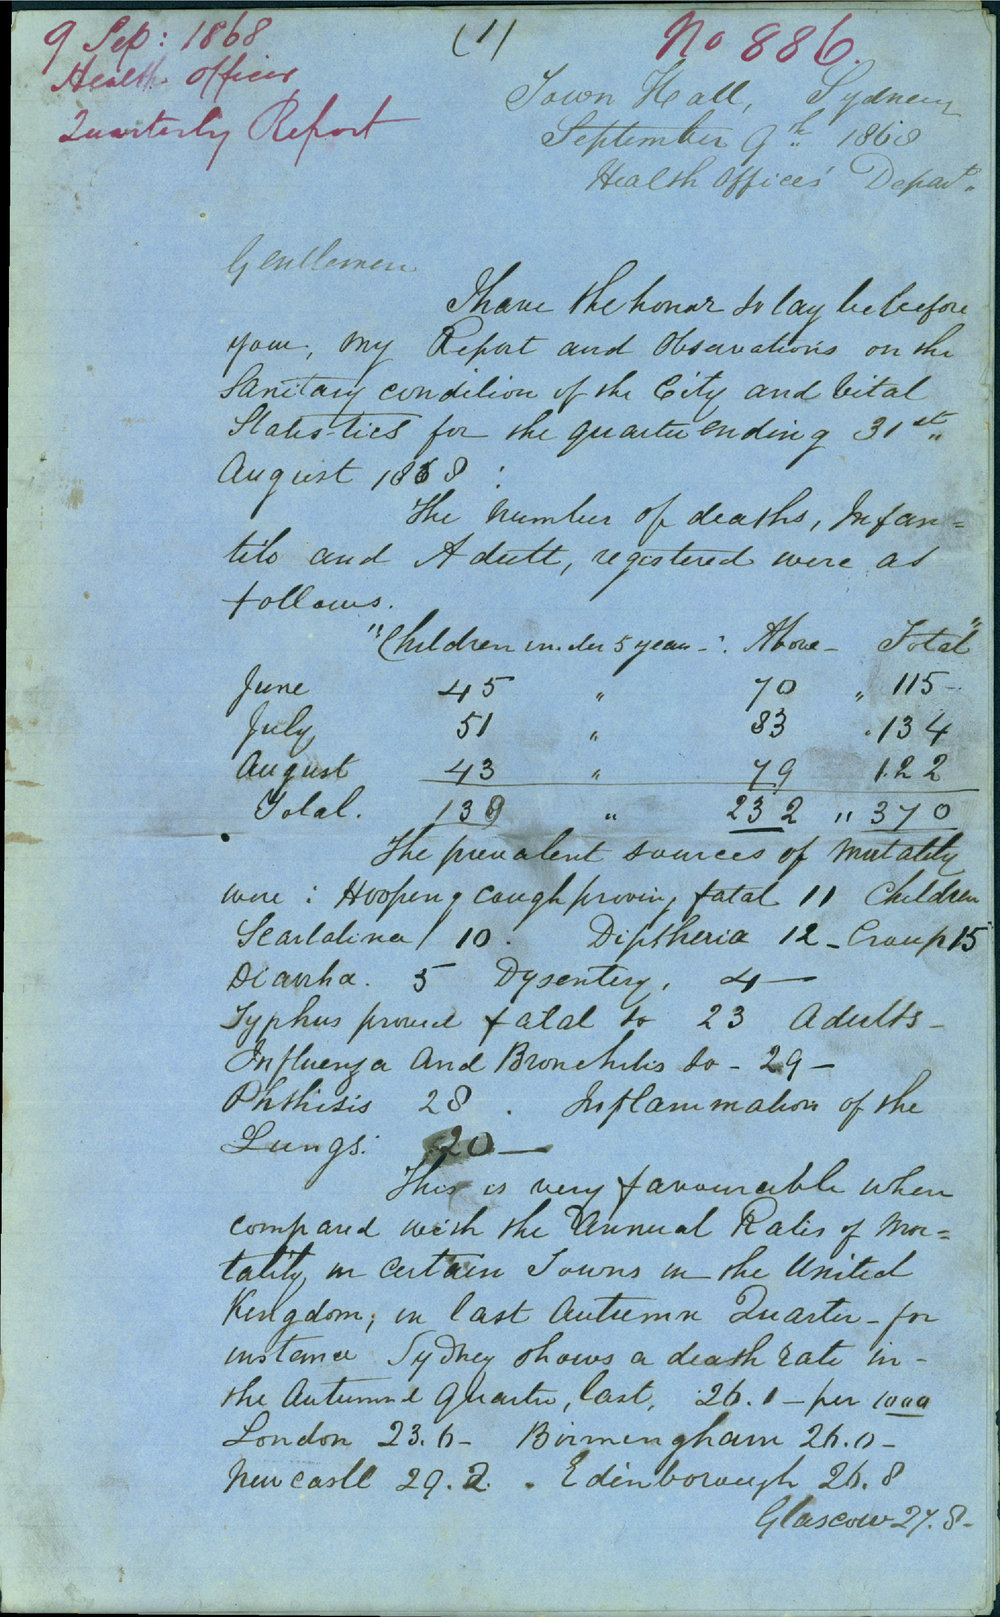 9 Sep: 1868
Health Officer
Quarterly Report
(1)
No 886.
Town Hall, Sydney
September 9th 1868
Health Officer's Depart.
Gentlemen
I have the honor to lay before
you, my Report and Observations on the
Sanitary condition of the City and Vital
Statistics for the quarter ending 31st
August 1868:
The number of deaths, Infan=
tile and Adult, registered were as
follows.
"Children under 5 years -: Above - Total"
June 45 " 70 " 115 -
July 51 " 83 " 134
August 43 " 79 122
Total. 139 " 232 " 370
The prevalent sources of Mortality
were: Hooping cough proving fatal 11 Children
Scarlatina 10. Diptheria 12 - Croup 15
Diarrha. 5 Dysentery, 4 —
Typhus proved fatal to 23 Adults -
Influenza and Bronchitis to - 29 -
Phthisis 28. Inflammation of the
Lungs: 20 —
This is very favourable when
compared with the Annual Rates of Mor=
tality in certain Towns in the United
Kingdom; in last Autumn Quarter - for
instance Sydney shows a death rate in -
the Autumnal quarter, last, 26.1 - per 1000
London 23.6 - Birmingham 26.0 -
Newcastle 29.2. Edinborough 26.8
Glascow 27.8 -